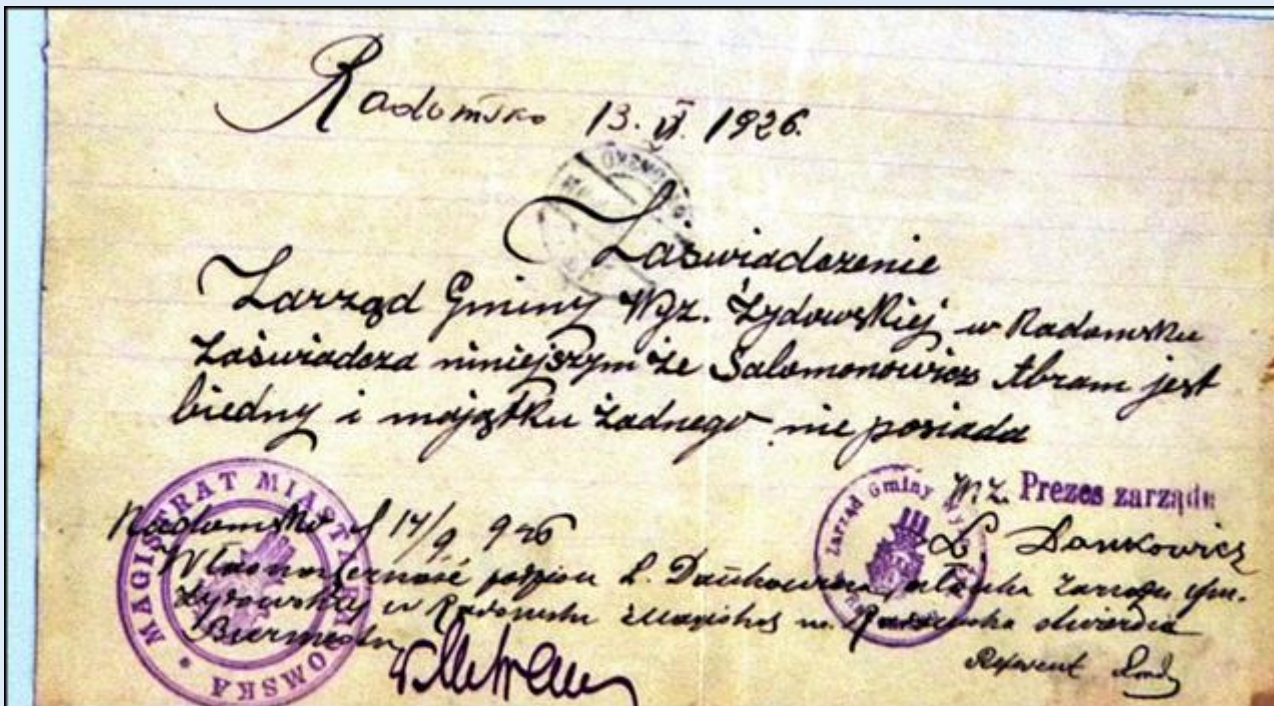 Radomsko 13. VI. 1926.
Zaświadczenie
Zarząd Gminy Wyz. Żydowskiej w Radomsku
zaświadcza niniejszym że Salomonowicz Abram jest
biedny i majątku żadnego nie posiada
MAGISTRAT MIASTA RADOMSKA
Zarząd Gminy Wyz
Wz. Prezes zarządu
L. Dankowicz
Radomsko d 14/9 926
Własnoręczność podpisu L. Dankowicza członka Zarządu Gm.
Żydowskiej w Radomsku Magistrat m. Radomska stwierdza
Burmistrz
Referent